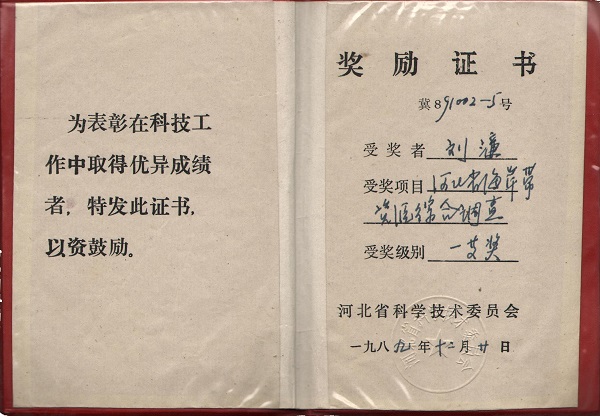 为表彰在科技工
作中取得优异成绩
者，特发此证书，
以资鼓励。
奖励证书
冀891002-5号
受奖者 刘濂
受奖项目 河北省海岸带
资源综合调查
受奖级别 一等奖
河北省科学技术委员会
一九八九年十二月廿日